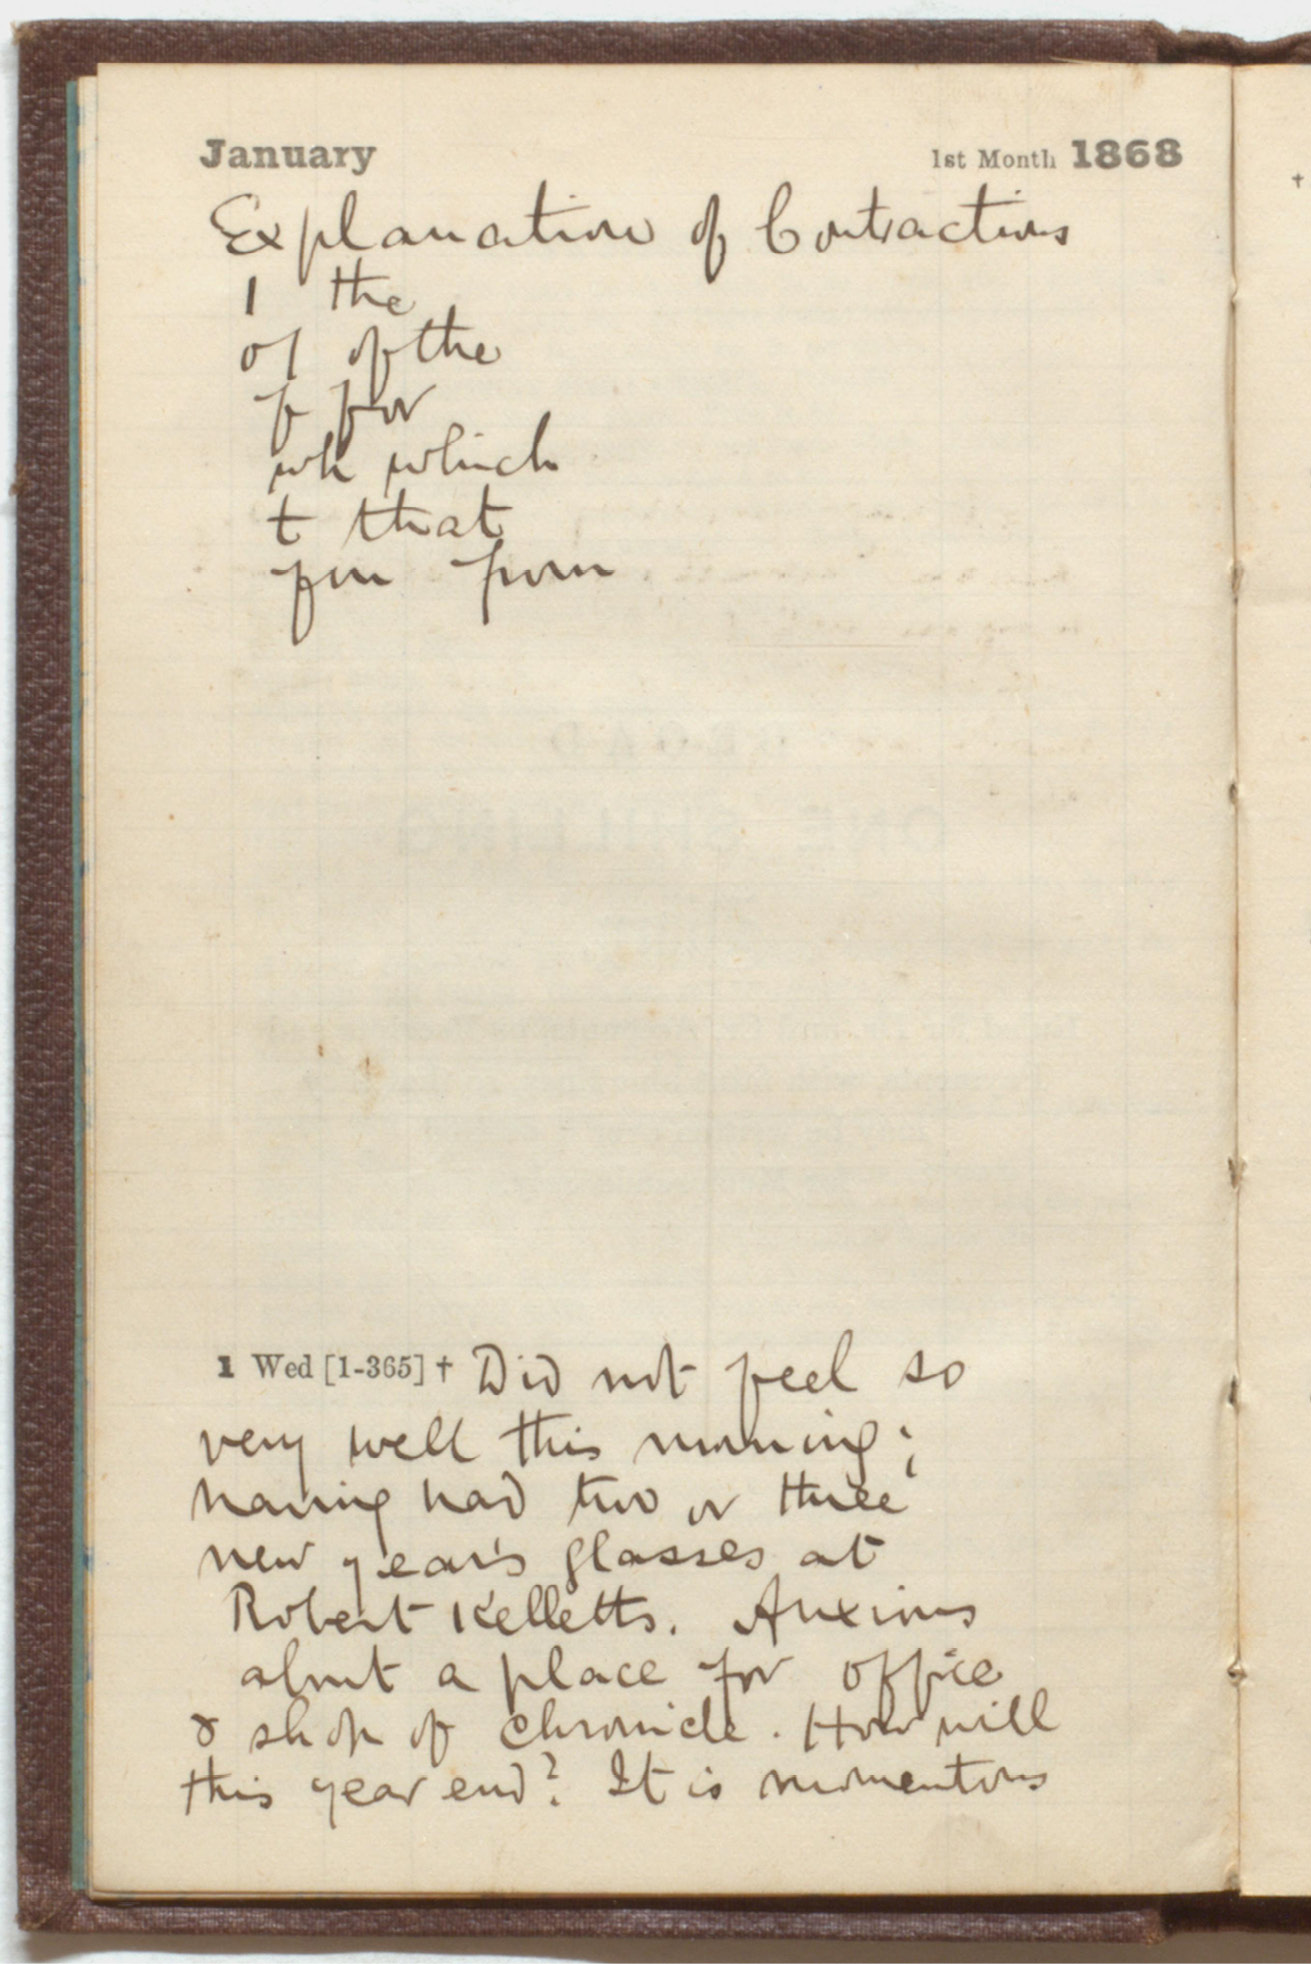 January 1st Month 1868
Explanation of Contractions
1 the
o1 of the
f for
wh which
t that
fm from
1 Wed [1-365] † Did not feel so
very well this morning;
having had two or three
new year's glasses at
Robert Kelletts. Anxious
about a place for office
& shop of Chronicle. How will
this year end? It is momentous